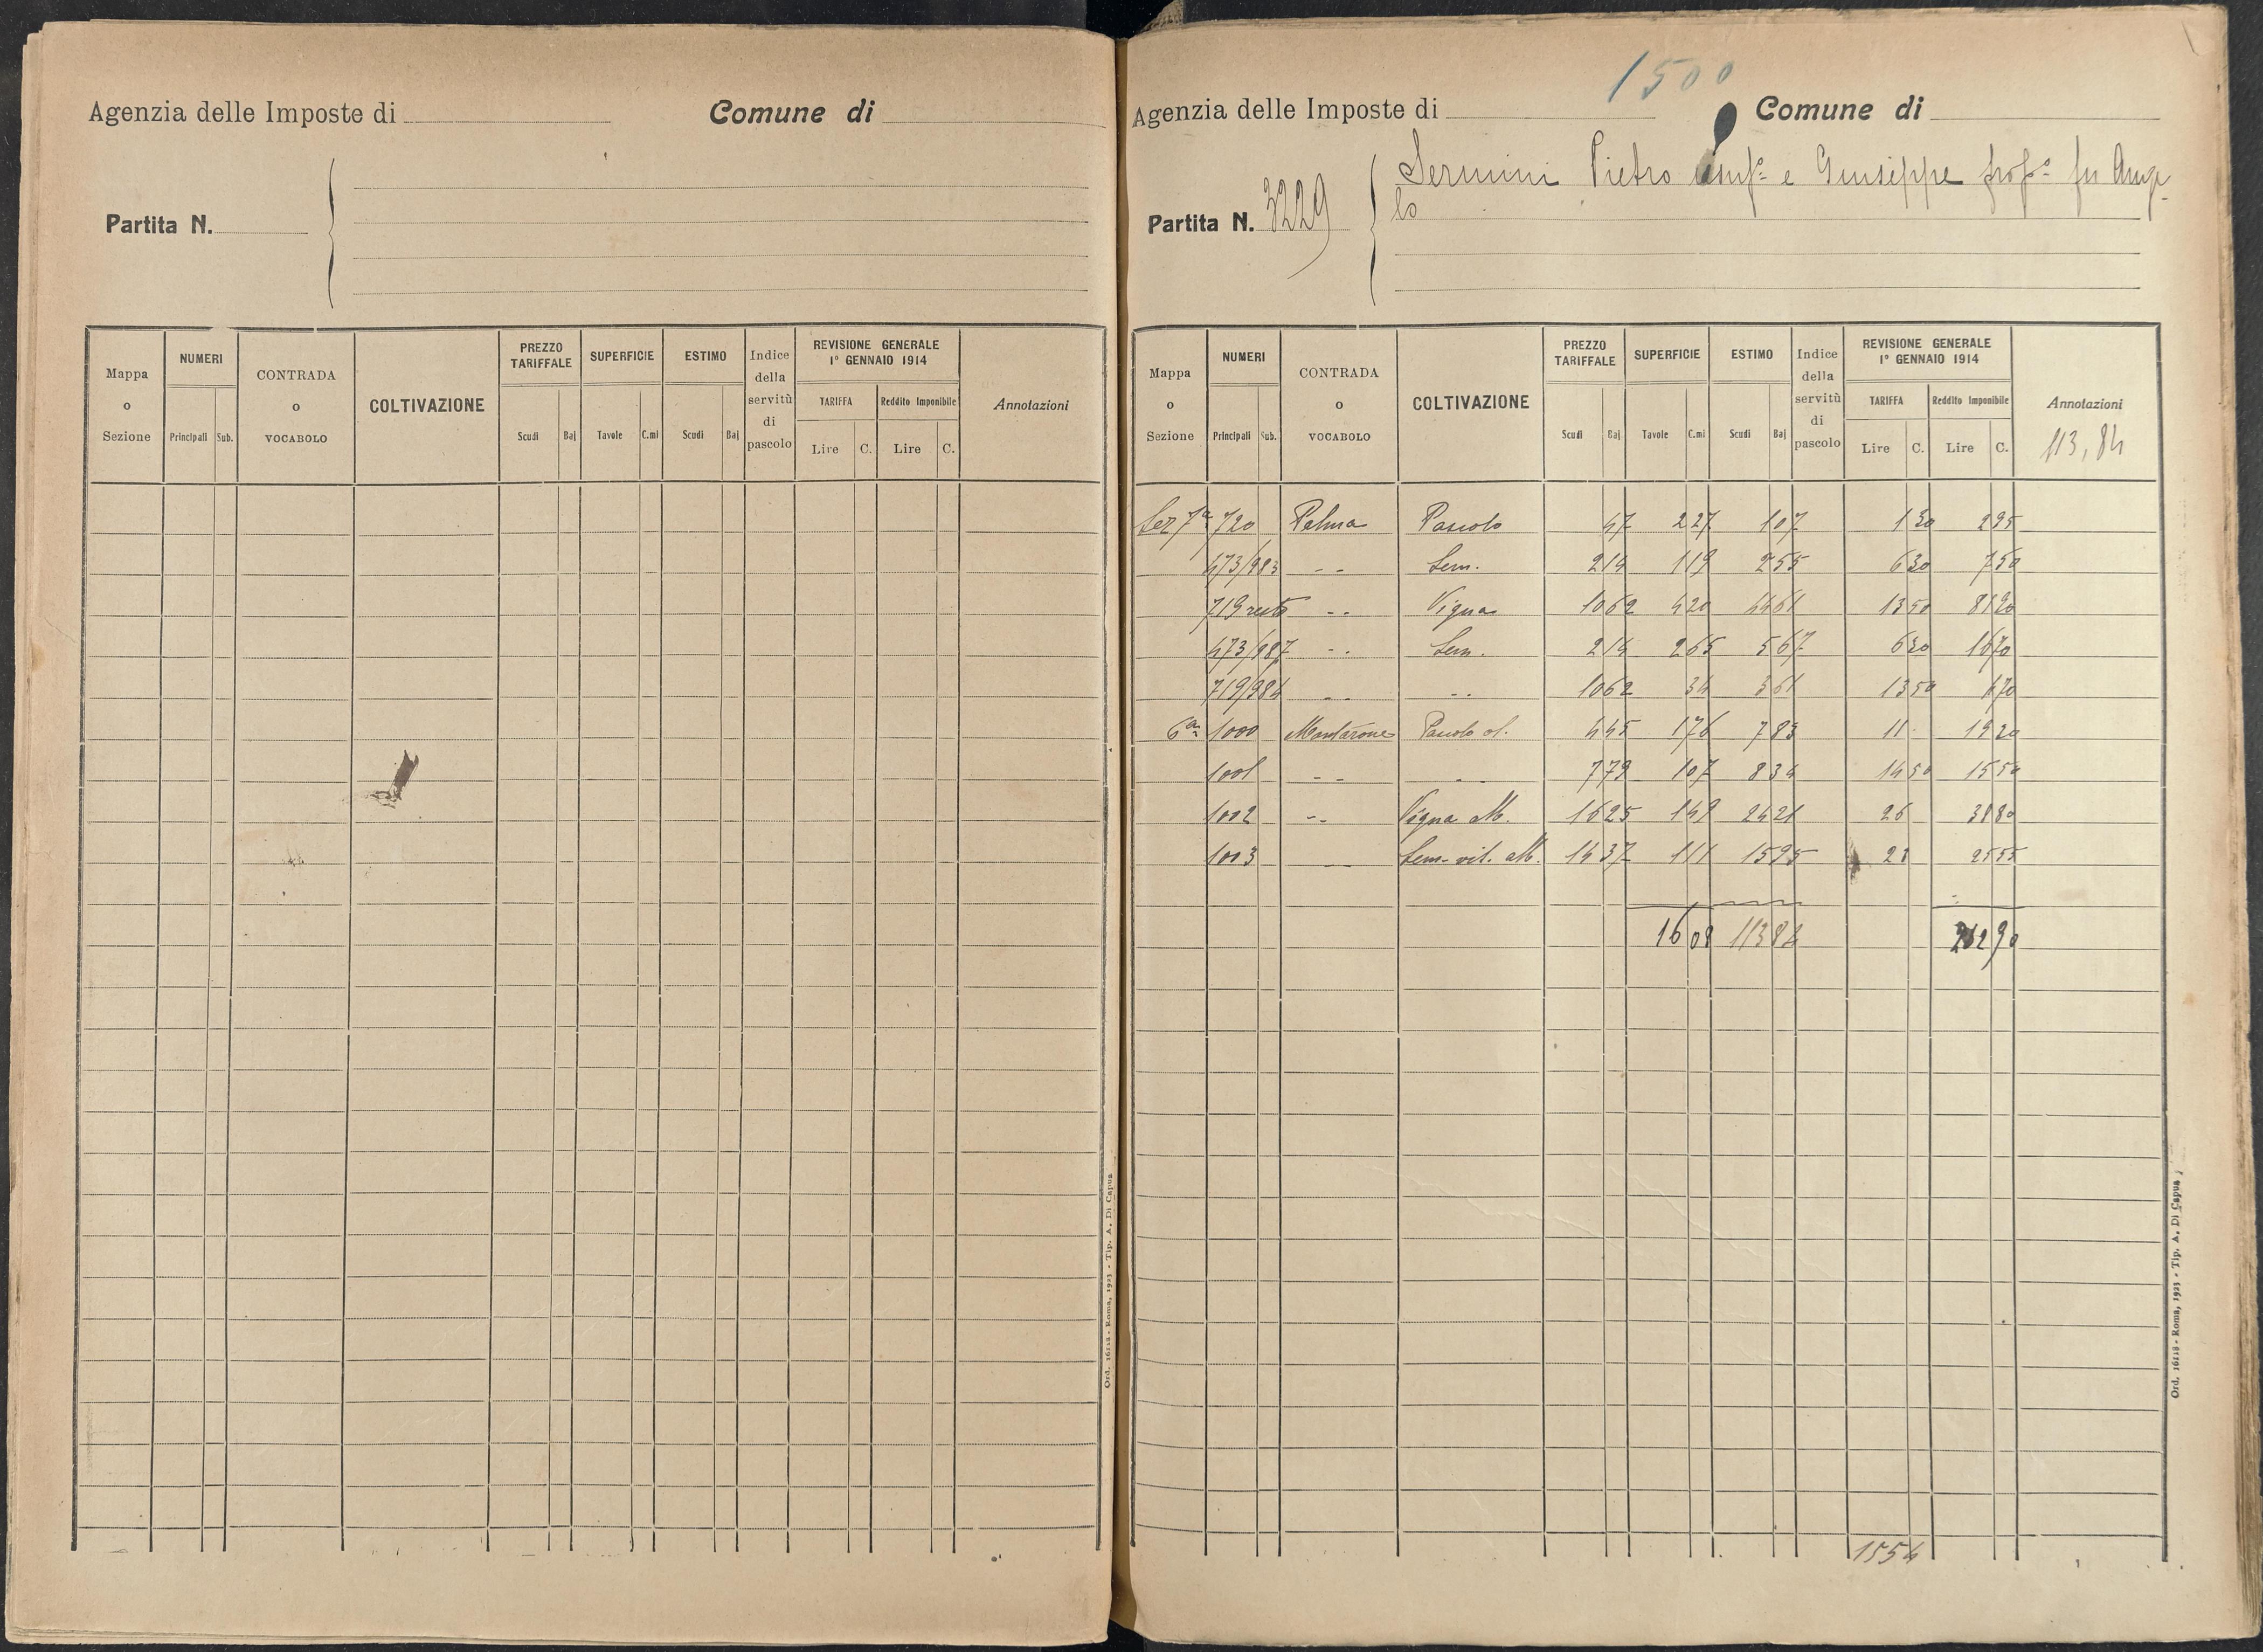 Agenzia delle Imposte di Comune di
Partita N.
Mappa o Sezione NUMERI Principali Sub. CONTRADA o VOCABOLO COLTIVAZIONE PREZZO TARIFFALE Scudi Baj SUPERFICIE Tavole C.mi ESTIMO Scudi Baj Indice della servitù di pascolo REVISIONE GENERALE 1° GENNAIO 1914 TARIFFA Lire C. Reddito Imponibile Lire C. Annotazioni
Ord. 16118 - Roma, 1923 - Tip. A. Di Capua
1500
Agenzia delle Imposte di Comune di
Sermini Pietro usuf.º e Giuseppe prop.º fu Ange-
lo
Partita N. 3229
Mappa o Sezione NUMERI Principali Sub. CONTRADA o VOCABOLO COLTIVAZIONE PREZZO TARIFFALE Scudi Baj SUPERFICIE Tavole C.mi ESTIMO Scudi Baj Indice della servitù di pascolo REVISIONE GENERALE 1° GENNAIO 1914 TARIFFA Lire C. Reddito Imponibile Lire C. Annotazioni
113,84
Sez 7ª 720 Palma Pascolo 47 227 107 1 30 2 95
473/983 - - Sem. 214 119 255 6 30 7 50
719 resto - - Vigna 1062 420 4461 13 50 81 90
473/987 - - Sem. 214 265 567 6 30 16 70
719/984 - - - - 1062 34 361 13 50 4 70
6ª 1000 Montarone Pascolo ol. 445 176 783 11 19 20
1001 - - - - 779 107 834 14 50 15 50
1002 - - Vigna M. 1625 149 2421 26 38 80
1003 - - Sem. vit. M. 1437 111 1595 23 25 55
16 08 113 84 212 90
1554
Ord. 16118 - Roma, 1923 - Tip. A. Di Capua